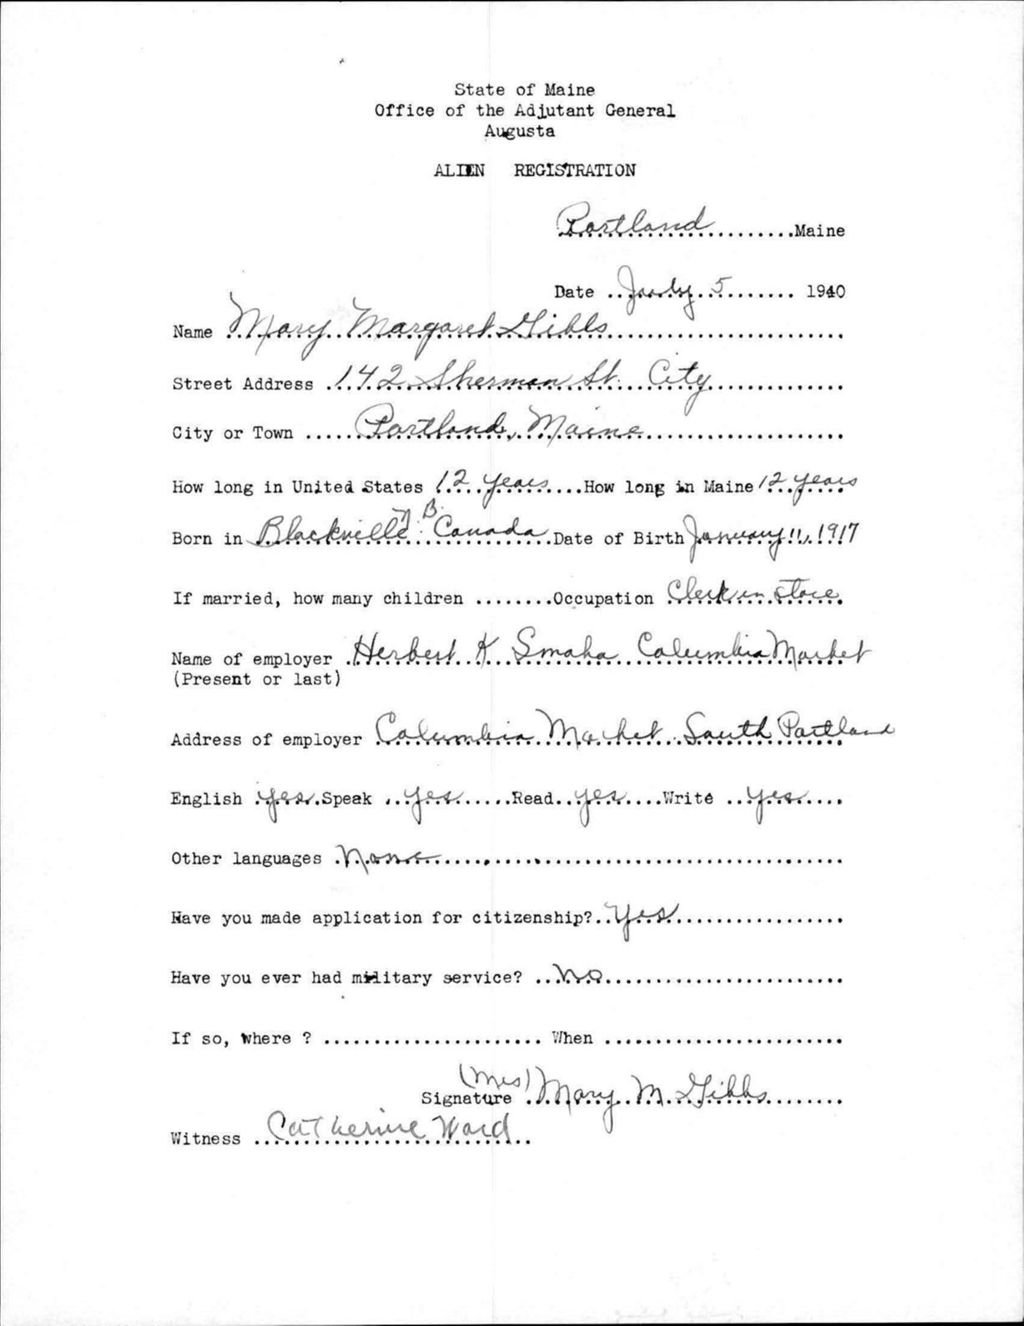 State of Maine
Office of the Adjutant General
Augusta
ALIEN REGISTRATION
Portland.........Maine
Date ..July 5........ 1940
Name Mary Margaret Gibbs
Street Address 142 Sherman St. City
City or Town Portland, Maine
How long in United States 12 years....How long in Maine 12 years
Born in Blackville N B. Canada.Date of Birth January 11, 1917
If married, how many children ........Occupation Clerk in store
Name of employer Herbert K Smaha Columbia Market
(Present or last)
Address of employer Columbia Market South Portland
English yes.Speak ..yes......Read..yes....Write ..yes....
Other languages None
Have you made application for citizenship?..Yes
Have you ever had military service? ..No
If so, where ? ...................... When ........................
(Mrs)
Signature Mary M. Gibbs
Witness Catherine Ward